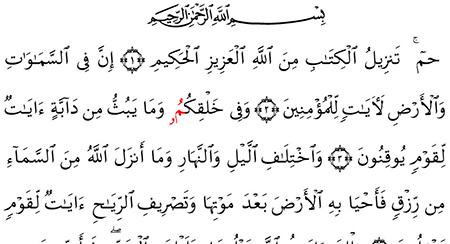 بِسْمِ ٱللَّهِ ٱلرَّحْمَٰنِ ٱلرَّحِيمِ
حمٓ ۚ تَنزِيلُ ٱلْكِتَٰبِ مِنَ ٱللَّهِ ٱلْعَزِيزِ ٱلْحَكِيمِ ﴿١﴾ إِنَّ فِى ٱلسَّمَٰوَٰتِ
وَٱلْأَرْضِ لَأَيَٰتٍ لِّلْمُؤْمِنِينَ ﴿٢﴾ وَفِى خَلْقِكُمُۥ وَمَا يَبُثُّ مِن دَآبَّةٍ ءَايَٰتٌ
لِّقَوْمٍ يُوقِنُونَ ﴿٣﴾ وَٱخْتِلَٰفِ ٱلَّيْلِ وَٱلنَّهَارِ وَمَا أَنزَلَ ٱللَّهُ مِنَ ٱلسَّمَآءِ
مِن رِّزْقٍ فَأَحْيَا بِهِ ٱلْأَرْضَ بَعْدَ مَوْتِهَا وَتَصْرِيفِ ٱلرِّيَٰحِ ءَايَٰتٌ لِّقَوْمٍ